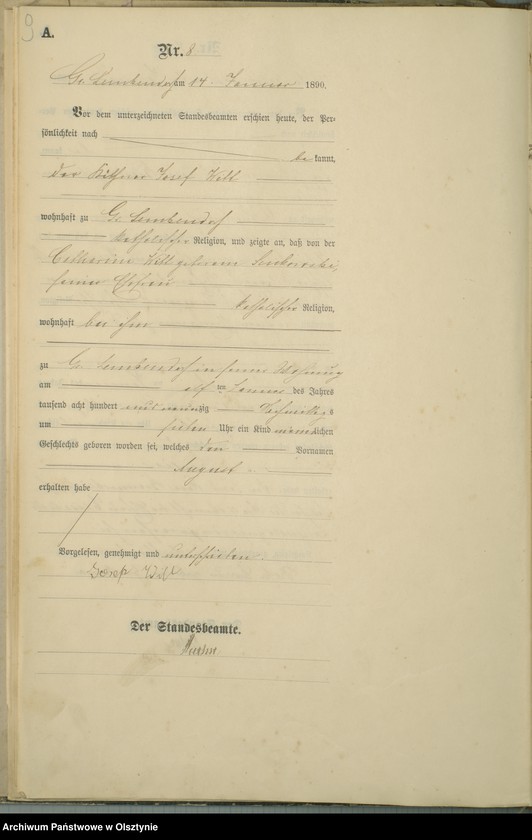 9
A.
Nr. 8
Gr. Lemkendorf am 14 Januar 1890.
Vor dem unterzeichneten Standesbeamten erschien heute, der Per-
sönlichkeit nach
be kannt,
der Käthner Josef Woll
wohnhaft zu Gr. Lemkendorf
katholischer Religion, und zeigte an, daß von der
Catharina geborene
seiner Ehefrau
katholischer Religion,
wohnhaft bei ihm
zu Gr. Lemkendorf in seiner Wohnung
am elf ten Januar des Jahres
tausend acht hundert und neunzig Nachmittags
um sieben Uhr ein Kind männlichen
Geschlechts geboren worden sei, welches den Vornamen
August
erhalten habe
Vorgelesen, genehmigt und unterschrieben
Josef
Der Standesbeamte.
Archiwum Państwowe w Olsztynie